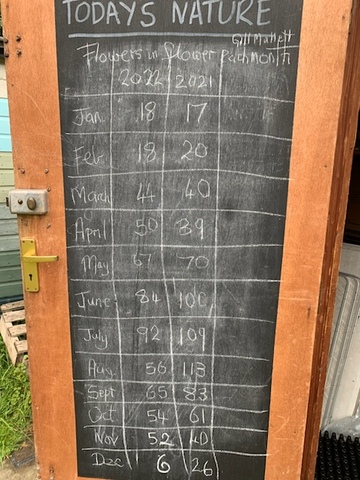 TODAYS NATURE
Gill Mallett
Flowers in flower each month
2022 2021
Jan 18 17
Feb 18 20
March 44 40
April 50 89
May 67 70
June 84 100
July 92 109
Aug 56 113
Sept 65 83
Oct 54 61
Nov 52 40
Dec 6 26